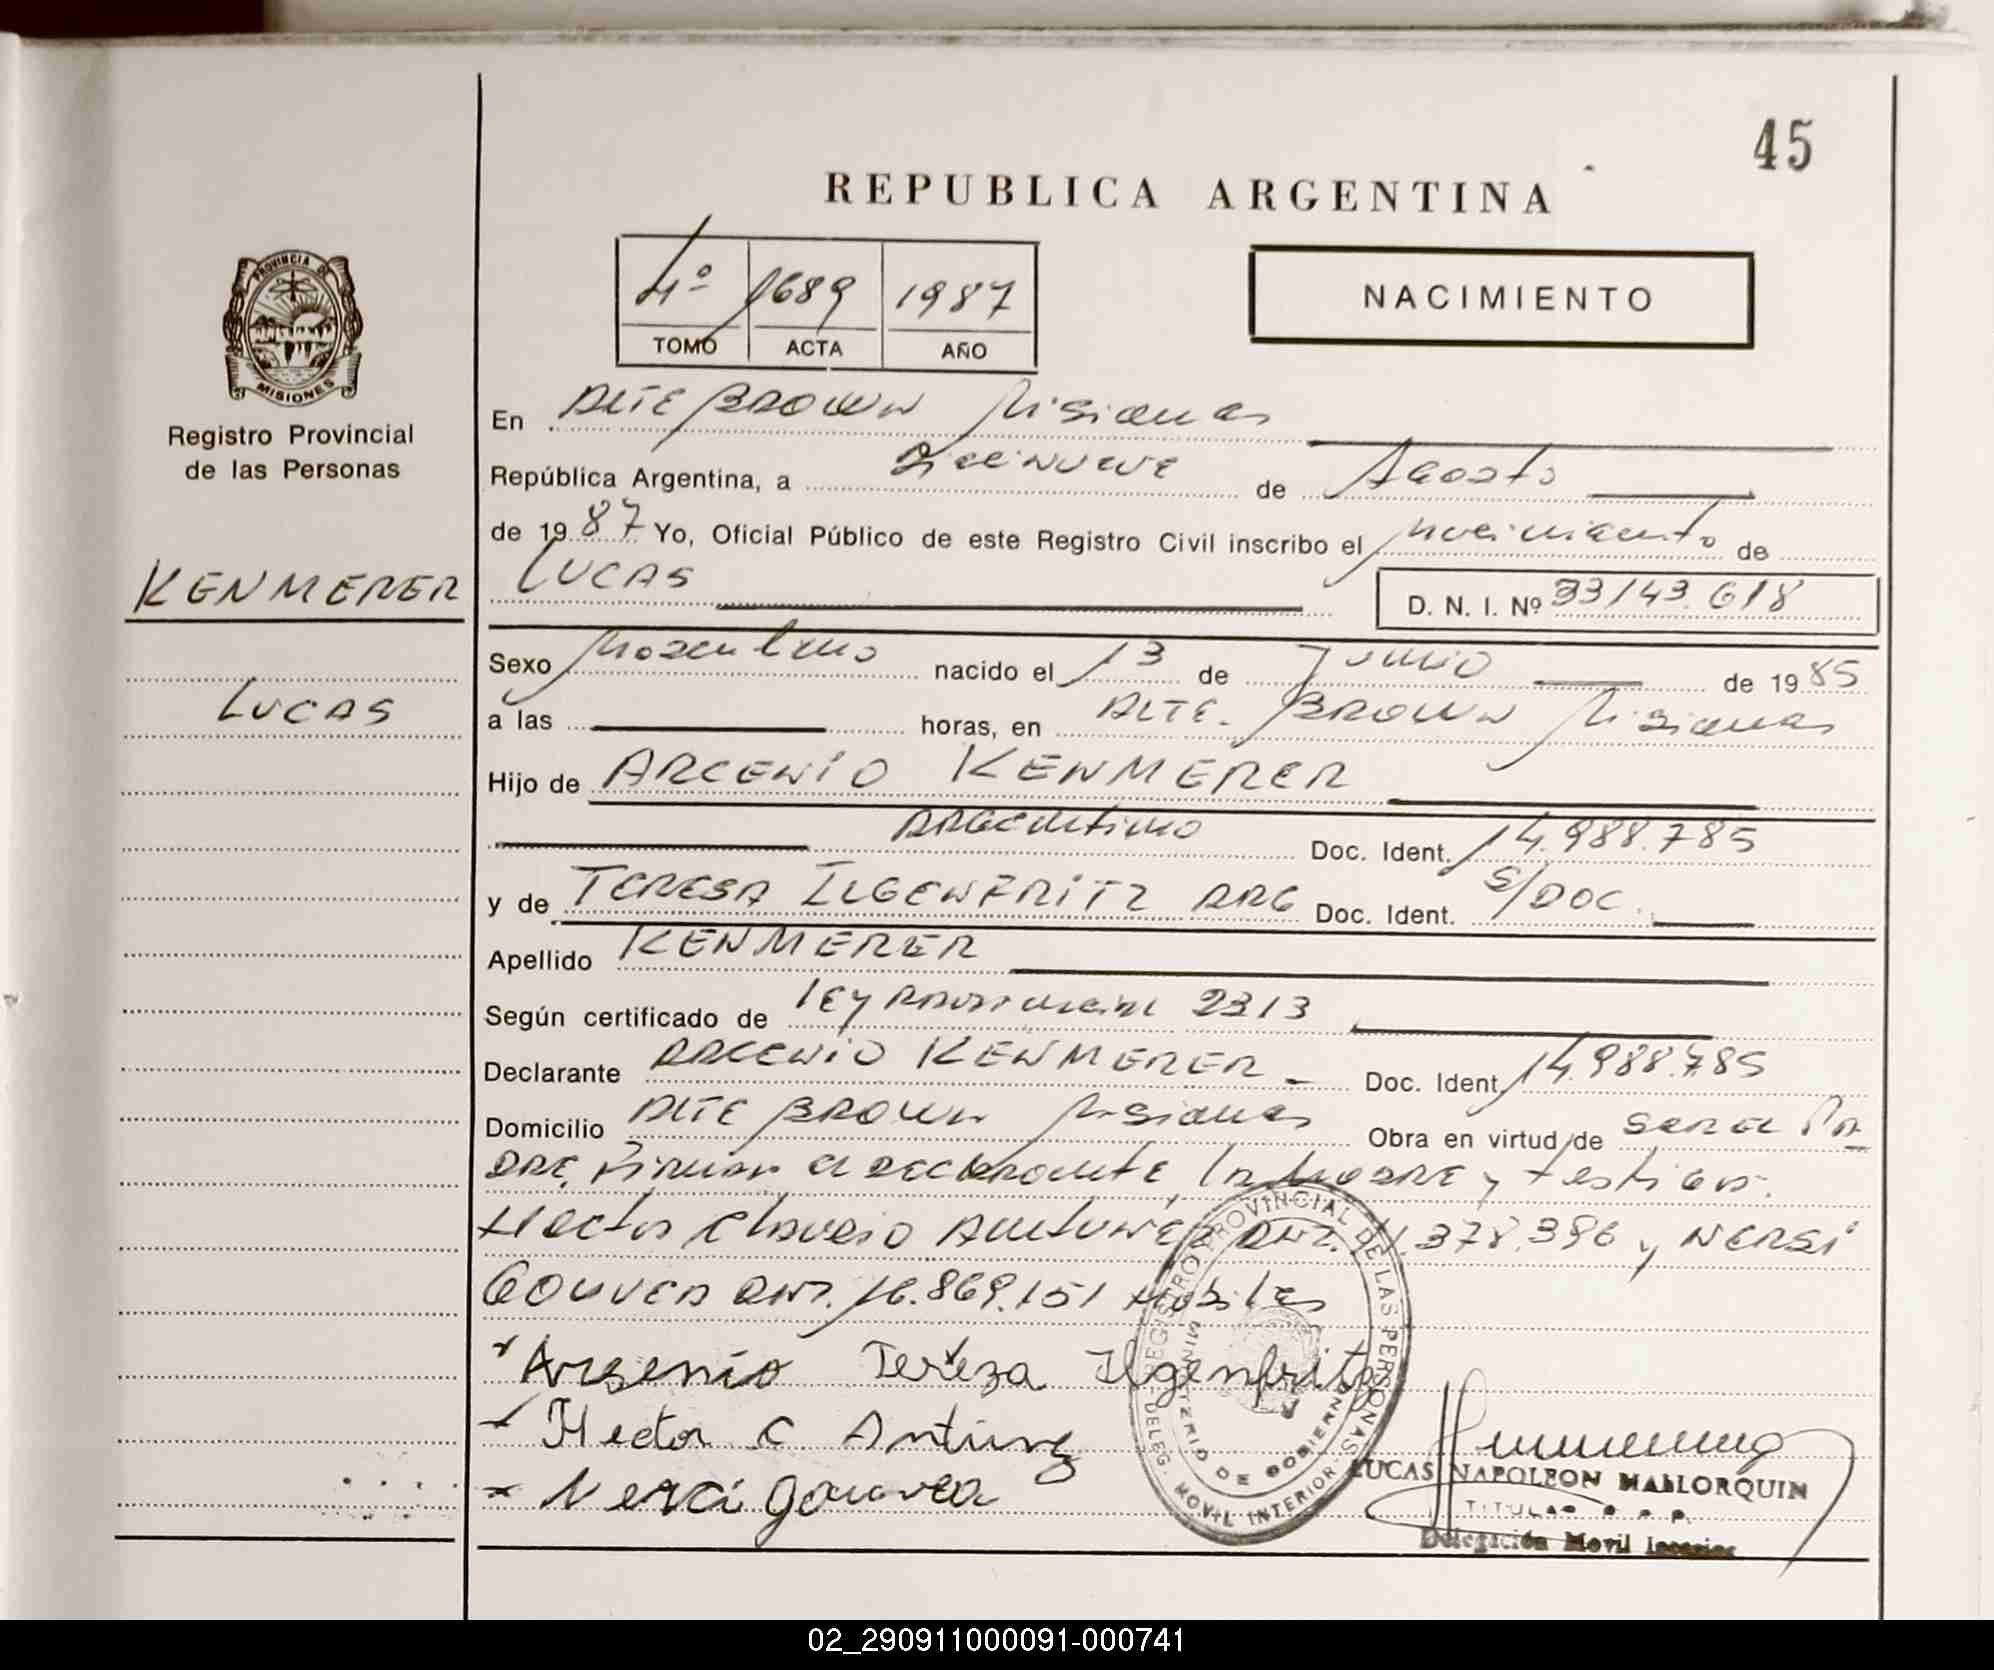 45
REPUBLICA ARGENTINA
4º 1689 1987
TOMO ACTA AÑO
NACIMIENTO
PROVINCIA DE MISIONES
Registro Provincial
de las Personas
KENMERER
LUCAS
En ALTE BROWN Misiones
República Argentina, a Diecinueve de Agosto
de 1987 Yo, Oficial Público de este Registro Civil inscribo el nacimiento de
LUCAS D. N. I. Nº 33143.618
Sexo Masculino nacido el 13 de Junio de 1985
a las horas, en ALTE. BROWN Misiones
Hijo de ARCENIO KENMERER
ARGENTINO Doc. Ident. 14.988.785
y de TERESA ILGENFRITZ ARG Doc. Ident. S/DOC.
Apellido KENMERER
Según certificado de ley Provincial 2313
Declarante ARCENIO KENMERER Doc. Ident. 14.988.785
Domicilio ALTE BROWN Misiones Obra en virtud de ser el PA
DRE, Firman el DECLARANTE, la MADRE y testigos.
Hector Claudio Antunez DNI. 378.396 y NERSI
GOUVEA DNI. 16.869.151 Habiles
Arsenio Tereza Ilgenfritz
Hector C Antunez
Nerci Gouvea
REGISTRO PROVINCIAL DE LAS PERSONAS
DELEG. MOVIL INTERIOR
MINISTERIO DE GOBIERNO
LUCAS NAPOLEON MALLORQUIN
TITULAR
Delegación Movil Interior
02_290911000091-000741